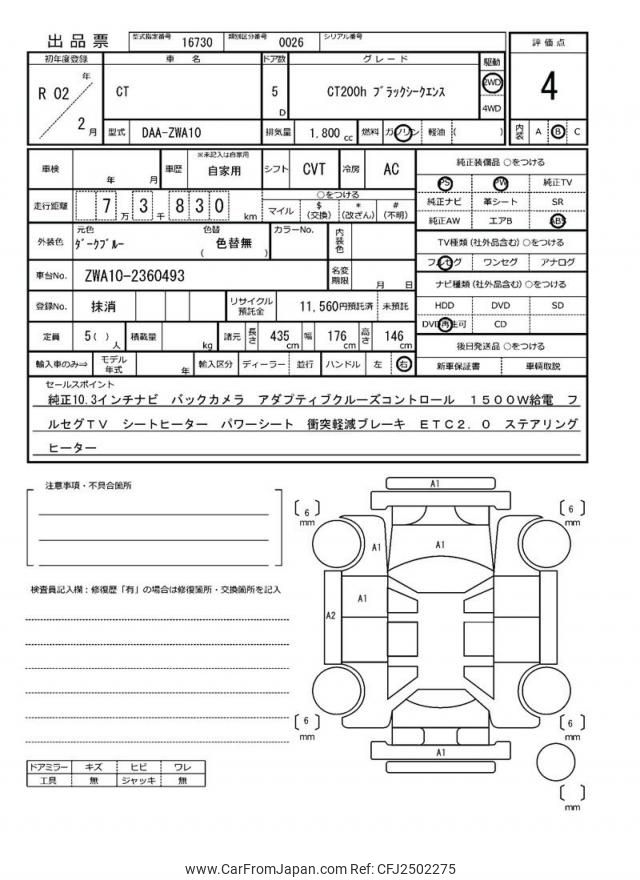 出品票 型式指定番号 16730 類別区分番号 0026 シリアル番号
評価点
4
内装 A B C
初年度登録 車名 ドア数 グレード 駆動
R 02 年 2 月 CT 5 D CT200h ブラックシークエンス 2WD 4WD
型式 DAA-ZWA10 排気量 1,800 cc 燃料 ガソリン 軽油 ( )
車検 年 月 車歴 ※未記入は自家用 自家用 シフト CVT 冷房 AC
走行距離 7 万 3 千 8 3 0 km
○をつける
マイル $ (交換) * (改ざん) # (不明)
外装色 元色 ダークブルー 色替 ( 色替無 ) カラーNo. 内装色
車台No. ZWA10-2360493 名変期限 月 日
登録No. 抹消 リサイクル預託金 11,560円預託済 未預託
定員 5( ) 人 積載量 kg 諸元 長さ 435 cm 幅 176 cm 高さ 146 cm
輸入車のみ⇒ モデル年式 年 輸入区分 ディーラー 並行 ハンドル 左 右
純正装備品 ○をつける
PS PW 純正TV
純正ナビ 革シート SR
純正AW エアB ABS
TV種類(社外品含む)○をつける
フルセグ ワンセグ アナログ
ナビ種類(社外品含む)○をつける
HDD DVD SD
DVD再生可 CD
後日発送品 ○をつける
新車保証書 車輌取説
セールスポイント
純正10.3インチナビ バックカメラ アダプティブクルーズコントロール 1500W給電 フ
ルセグTV シートヒーター パワーシート 衝突軽減ブレーキ ETC2.0 ステアリング
ヒーター
注意事項・不具合箇所
検査員記入欄:修復歴「有」の場合は修復箇所・交換箇所を記入
ドアミラー キズ ヒビ ワレ
工具 無 ジャッキ 無
A1
6 mm
6 mm
A1
A1
A1
A2
6 mm
6 mm
A1
mm
www.CarFromJapan.com Ref: CFJ2502275